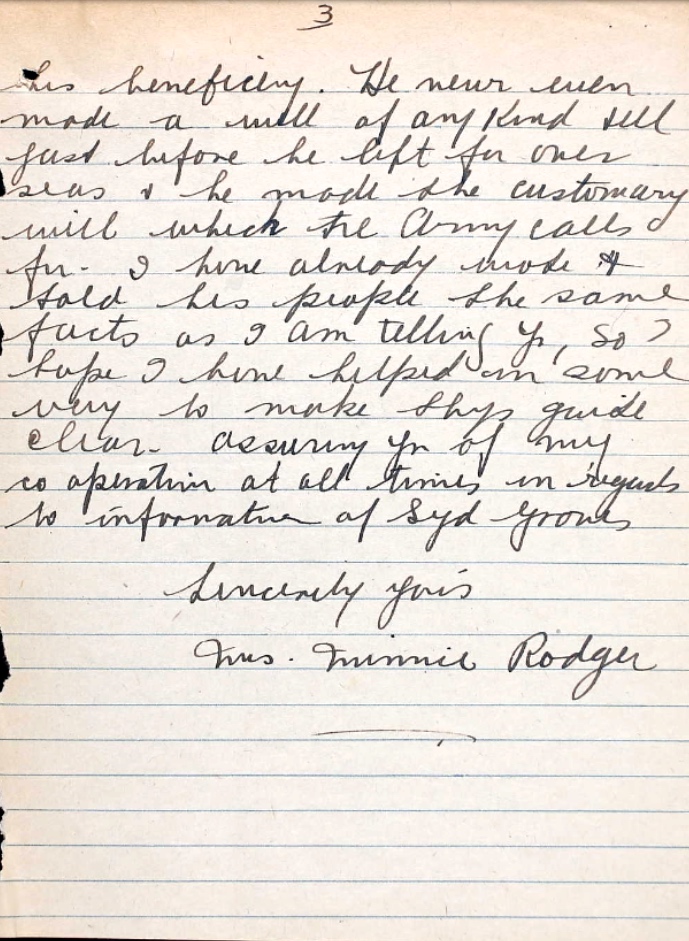 3
his beneficiery. He never even
made a will of any Kind till
just before he left for over
seas & he made the customary
will which the Army calls
for - I have already made &
told his people the same
facts as I am telling yr, so I
hope I have helped in some
way to make guide
clear - assuring yr of my
co operation at all times in regards
to information of Syd
Sincerely yours
Mrs. Minnie Rodger